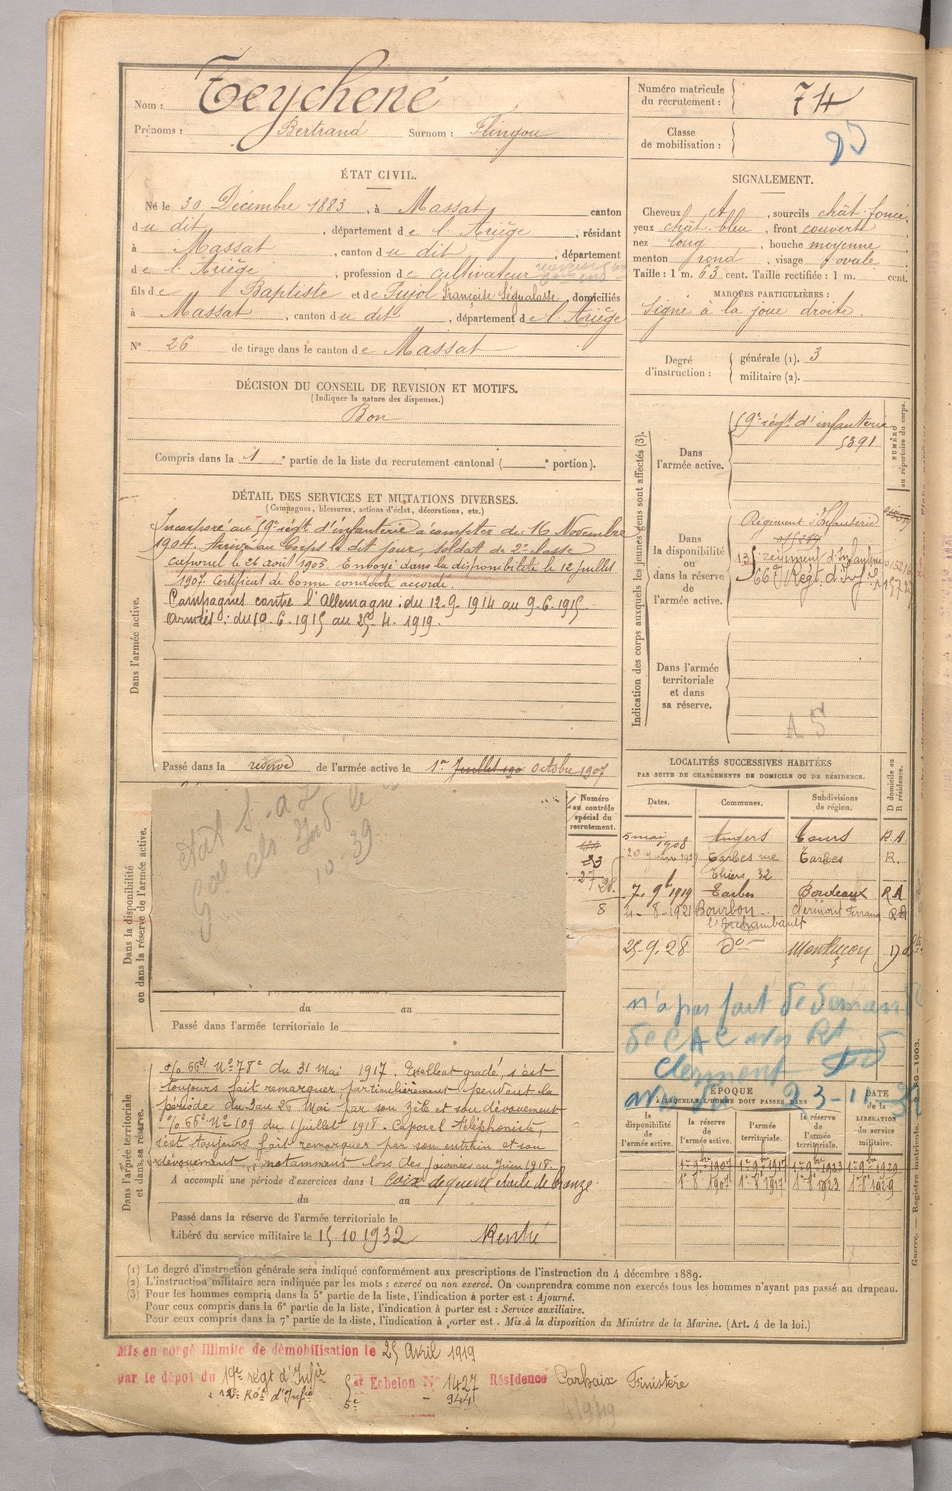 Nom : Teychené
Prénoms : Bertrand Surnom : Flingou
Numéro matricule du recrutement : 74
Classe de mobilisation :
ÉTAT CIVIL.
Né le 30 Décembre 1883, à Massat canton
du dit, département de l'Ariège, résidant
à Massat, canton du dit, département
de l'Ariège, profession de cultivateur
fils de Baptiste et de Pujol Françoise Ségualasse, domiciliés
à Massat, canton du dit, département de l'Ariège
N° 26 de tirage dans le canton de Massat
SIGNALEMENT.
Cheveux ct, sourcils chât. foncé,
yeux chât. bleu, front couvert
nez long, bouche moyenne
menton rond, visage ovale
Taille : 1 m. 63 cent. Taille rectifiée : 1 m. cent.
MARQUES PARTICULIÈRES :
Signe à la joue droite.
Degré d'instruction : générale (1). 3
militaire (2).
DÉCISION DU CONSEIL DE REVISION ET MOTIFS.
(Indiquer la nature des dispenses.)
Bon
Compris dans la 1e partie de la liste du recrutement cantonal ( e portion).
DÉTAIL DES SERVICES ET MUTATIONS DIVERSES.
(Campagnes, blessures, actions d'éclat, décorations, etc.)
Dans l'armée active.
Incorporé au 59e régt d'infanterie à compter du 16 Novembre
1904. Arrivé au Corps le dit jour, soldat de 2e classe
caporal le 26 août 1905. Envoyé dans la disponibilité le 12 juillet
1907. Certificat de bonne conduite accordé.
Campagnes contre l'Allemagne : du 12.9.1914 au 9.6.1915.
Armées : du 10.6.1915 au 25.4.1919.
Passé dans la réserve de l'armée active le 1er Juillet 190 Octobre 1907
Indication des corps auxquels les jeunes gens sont affectés (3).
NUMÉRO au répertoire du corps.
Dans l'armée active.
59e régt d'infanterie
5391
Dans la disponibilité ou dans la réserve de l'armée active.
Régiment d'Infanterie
135e régiment d'Infanterie
66e Régt d'Inf
Dans l'armée territoriale et dans sa réserve.
A S
LOCALITÉS SUCCESSIVES HABITÉES
PAR SUITE DE CHANGEMENTS DE DOMICILE OU DE RÉSIDENCE.
Dates. Communes. Subdivisions de région. D domicile ou R résidence.
5 mai 1908 Angers Tours R.A
Tarbes rue Thiers, 32 Tarbes R.
7. 9bre 1919 Tarbes Bordeaux R A
4-8-1921 Bourbon l'Archambault Clermont Ferrand RA
25-9.28 do Montluçon D
Dans la disponibilité ou dans la réserve de l'armée active.
10-39
Numéro au contrôle spécial du recrutement.
33
27
28.
8
du au
Passé dans l'armée territoriale le
n'a pas fait de deman
de CAC
Clermont
23-11-
Dans l'armée territoriale et dans sa réserve.
o/o 66e N° 78e du 31 Mai 1917. Excellent gradé, s'est
toujours fait remarquer particulièrement pendant la
période du 3 au 26 Mai par son zèle et son dévouement
o/o 66e N° 109 du 1 juillet 1918. Caporal téléphoniste,
s'est toujours fait remarquer par son entrain et son
dévouement, notamment lors des journées au Juin 1918.
A accompli une période d'exercices dans l Croix de guerre étoile de bronze.
du au
Passé dans la réserve de l'armée territoriale le
Libéré du service militaire le 15.10.1932 Rentré
ÉPOQUE
À LAQUELLE L'HOMME DOIT PASSER DANS
DATE de la LIBÉRATION du service militaire.
la disponibilité de l'armée active. la réserve de l'armée active. l'armée territoriale. la réserve de l'armée territoriale.
1er 9bre 1907 1er 9bre 1917 1er 9bre 1923 1er 9bre 1929
1er 8bre 1907 1er 8bre 1917 1er 8bre 1923 1er 8bre 1929
Guerre. — Registre matricule.
(1) Le degré d'instruction générale sera indiqué conformément aux prescriptions de l'instruction du 4 décembre 1889.
(2) L'instruction militaire sera indiquée par les mots : exercé ou non exercé. On comprendra comme non exercés tous les hommes n'ayant pas passé au drapeau.
(3) Pour les hommes compris dans la 5e partie de la liste, l'indication à porter est : Ajourné.
Pour ceux compris dans la 6e partie de la liste, l'indication à porter est : Service auxiliaire.
Pour ceux compris dans la 7e partie de la liste, l'indication à porter est : Mis à la disposition du Ministre de la Marine. (Art. 4 de la loi.)
Mis en congé illimité de démobilisation le 25 Avril 1919
par le dépôt du 19e régt d'Infie Echelon N° 1427 Résidence Carhaix Finistère
944